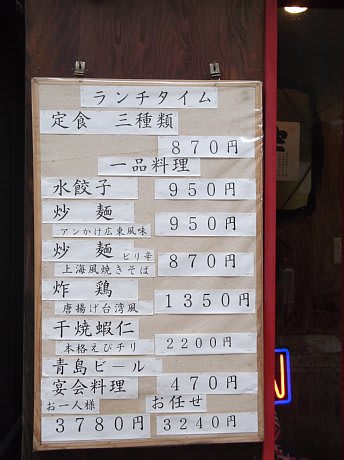 ランチタイム
定食 三種類
870円
一品料理
水餃子 950円
炒 麺 950円
アンかけ広東風味
炒 麺 ピリ辛 870円
上海風焼きそば
炸 鶏 1350円
唐揚げ台湾風
干焼蝦仁 2200円
本格えびチリ
青島ビール 470円
宴会料理
お一人様 お任せ
3780円 3240円